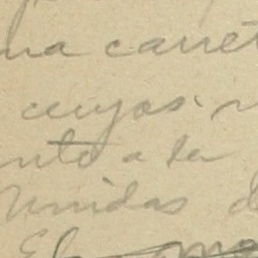 una carret
cuyos
nto a la
Unidas d
El